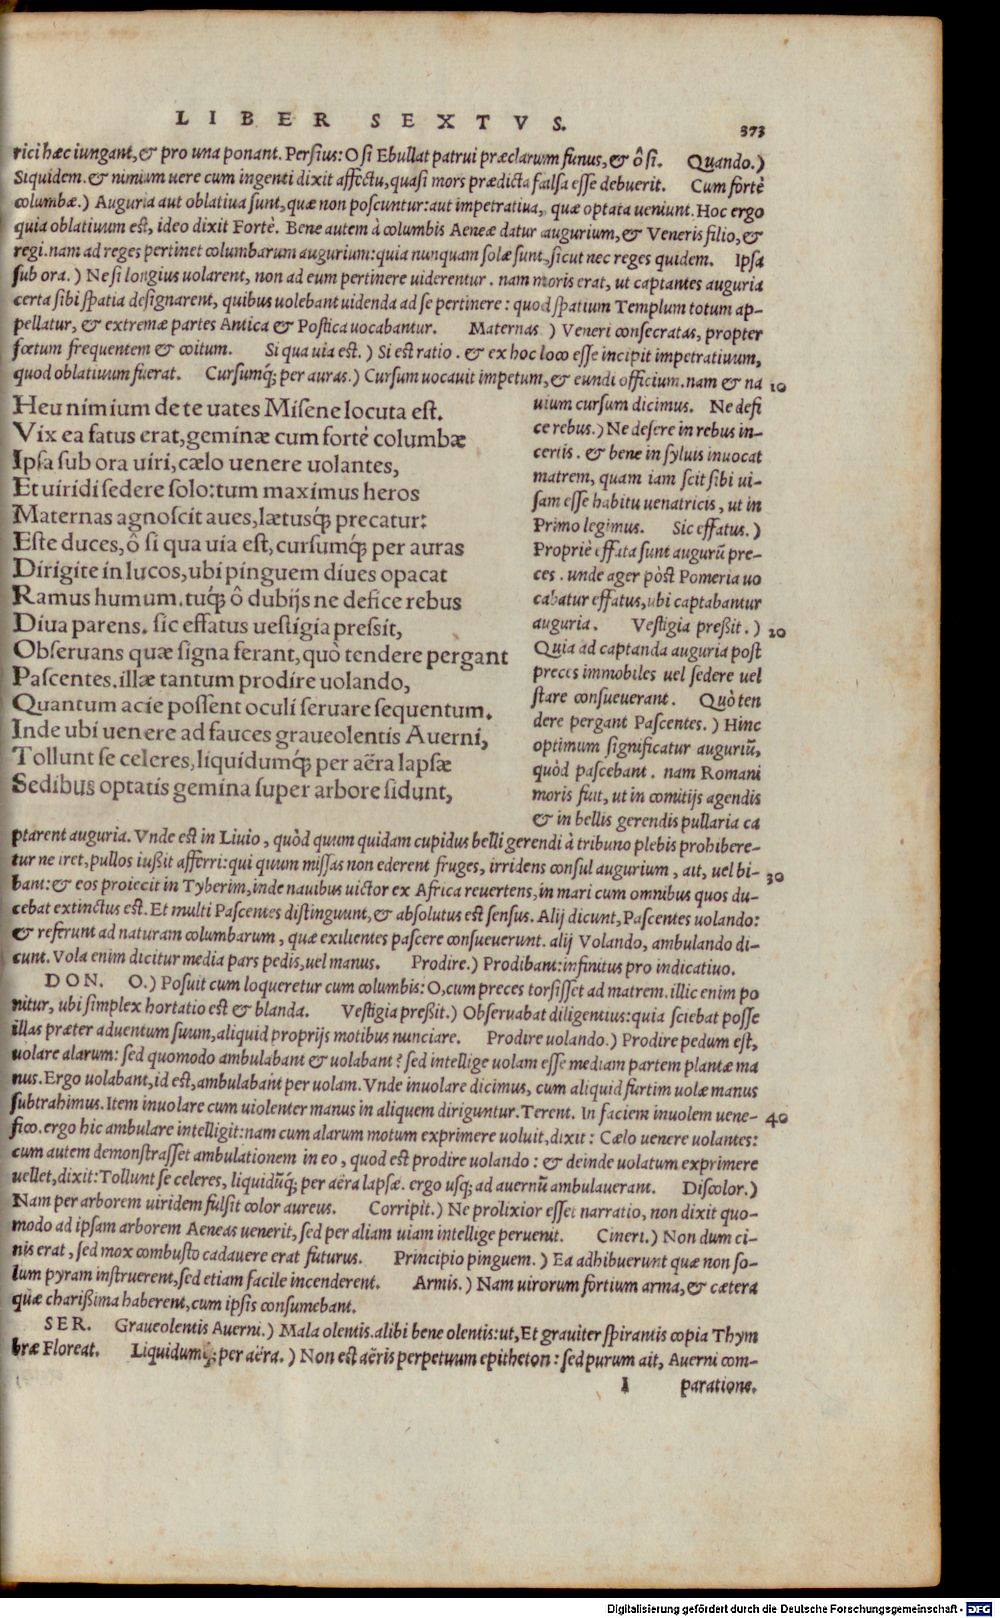 LIBER SEXTVS.
373
rici hæc iungant, & pro una ponant. Persius: O si Ebullat patrui præclarum funus, & ô si. Quando.)
Siquidem. & nimium uere cum ingenti dixit affectu, quasi mors prædicta falsa esse debuerit. Cum fortè
columbæ.) Auguria aut oblatiua sunt, quæ non poscuntur: aut impetratiua, quæ optata ueniunt. Hoc ergo
quia oblatiuum est, ideo dixit Fortè. Bene autem à columbis Aeneæ datur augurium, & Veneris filio, &
regi. nam ad reges pertinet columbarum augurium: quia nunquam solæ sunt, sicut nec reges quidem. Ipsa
sub ora.) Ne si longius uolarent, non ad eum pertinere uiderentur. nam moris erat, ut captantes auguria
certa sibi spatia designarent, quibus uolebant uidenda ad se pertinere: quod spatium Templum totum ap-
pellatur, & extremæ partes Antica & Postica uocabantur. Maternas.) Veneri consecratas, propter
fœtum frequentem & coitum. Si qua uia est.) Si est ratio. & ex hoc loco esse incipit impetratiuum,
quod oblatiuum fuerat. Cursumq́; per auras.) Cursum uocauit impetum, & eundi officium. nam & na 10
Heu nimium de te uates Misene locuta est.
Vix ea fatus erat, geminæ cum fortè columbæ
Ipsa sub ora uiri, cælo uenere uolantes,
Et uiridi sedere solo: tum maximus heros
Maternas agnoscit aues, lætusq́; precatur:
Este duces, ô si qua uia est, cursumq́; per auras
Dirigite in lucos, ubi pinguem diues opacat
Ramus humum. tuq́; ô dubijs ne defice rebus
Diua parens. sic effatus uestigia pressit,
Obseruans quæ signa ferant, quò tendere pergant
Pascentes. illæ tantum prodire uolando,
Quantum acie possent oculi seruare sequentum.
Inde ubi uenere ad fauces graueolentis Auerni,
Tollunt se celeres, liquidumq́; per aëra lapsæ
Sedibus optatis gemina super arbore sidunt,
uium cursum dicimus. Ne defi
ce rebus.) Ne desere in rebus in-
certis. & bene in syluis inuocat
matrem, quam iam scit sibi ui-
sam esse habitu uenatricis, ut in
Primo legimus. Sic effatus.)
Propriè effata sunt augurũ pre-
ces. unde ager pòst Pomeria uo
cabatur effatus, ubi captabantur
auguria. Vestigia preßit.) 20
Quia ad captanda auguria post
preces immobiles uel sedere uel
stare consueuerant. Quò ten
dere pergant Pascentes.) Hinc
optimum significatur auguriũ,
quòd pascebant. nam Romani
moris fuit, ut in comitijs agendis
& in bellis gerendis pullaria ca
ptarent auguria. Vnde est in Liuio, quòd quum quidam cupidus belli gerendi à tribuno plebis prohibere-
tur ne iret, pullos iußit afferri: qui quum missas non ederent fruges, irridens consul augurium, ait, uel bi- 30
bant: & eos proiecit in Tyberim, inde nauibus uictor ex Africa reuertens, in mari cum omnibus quos du-
cebat extinctus est. Et multi Pascentes distinguunt, & absolutus est sensus. Alij dicunt, Pascentes uolando:
& referunt ad naturam columbarum, quæ exilientes pascere consueuerunt. alij Volando, ambulando di-
cunt. Vola enim dicitur media pars pedis, uel manus. Prodire.) Prodibant: infinitus pro indicatiuo.
DON. O.) Posuit cum loqueretur cum columbis: O, cum preces torsisset ad matrem. illic enim po
nitur, ubi simplex hortatio est & blanda. Vestigia preßit.) Obseruabat diligentius: quia sciebat posse
illas præter aduentum suum, aliquid proprijs motibus nunciare. Prodire uolando.) Prodire pedum est,
uolare alarum: sed quomodo ambulabant & uolabant? sed intellige uolam esse mediam partem plantæ ma
nus. Ergo uolabant, id est, ambulabant per uolam. Vnde inuolare dicimus, cum aliquid furtim uolæ manus
subtrahimus. Item inuolare cum uiolenter manus in aliquem diriguntur. Terent. In faciem inuolem uene- 40
fico. ergo hic ambulare intelligit: nam cum alarum motum exprimere uoluit, dixit: Cælo uenere uolantes:
cum autem demonstrasset ambulationem in eo, quod est prodire uolando: & deinde uolatum exprimere
uellet, dixit: Tollunt se celeres, liquidũq́; per aëra lapsæ. ergo usq; ad auernũ ambulauerant. Discolor.)
Nam per arborem uiridem fulsit color aureus. Corripit.) Ne prolixior esset narratio, non dixit quo-
modo ad ipsam arborem Aeneas uenerit, sed per aliam uiam intellige peruenit. Cineri.) Non dum ci-
nis erat, sed mox combusto cadauere erat futurus. Principio pinguem.) Ea adhibuerunt quæ non so-
lum pyram instruerent, sed etiam facile incenderent. Armis.) Nam uirorum fortium arma, & cætera
quæ charißima haberent, cum ipsis consumebant.
SER. Graueolentis Auerni.) Mala olentis. alibi bene olentis: ut, Et grauiter spirantis copia Thym
bræ Floreat. Liquidumq́; per aëra.) Non est aëris perpetuum epitheton: sed purum ait, Auerni com-
I paratione.
Digitalisierung gefördert durch die Deutsche Forschungsgemeinschaft - DFG